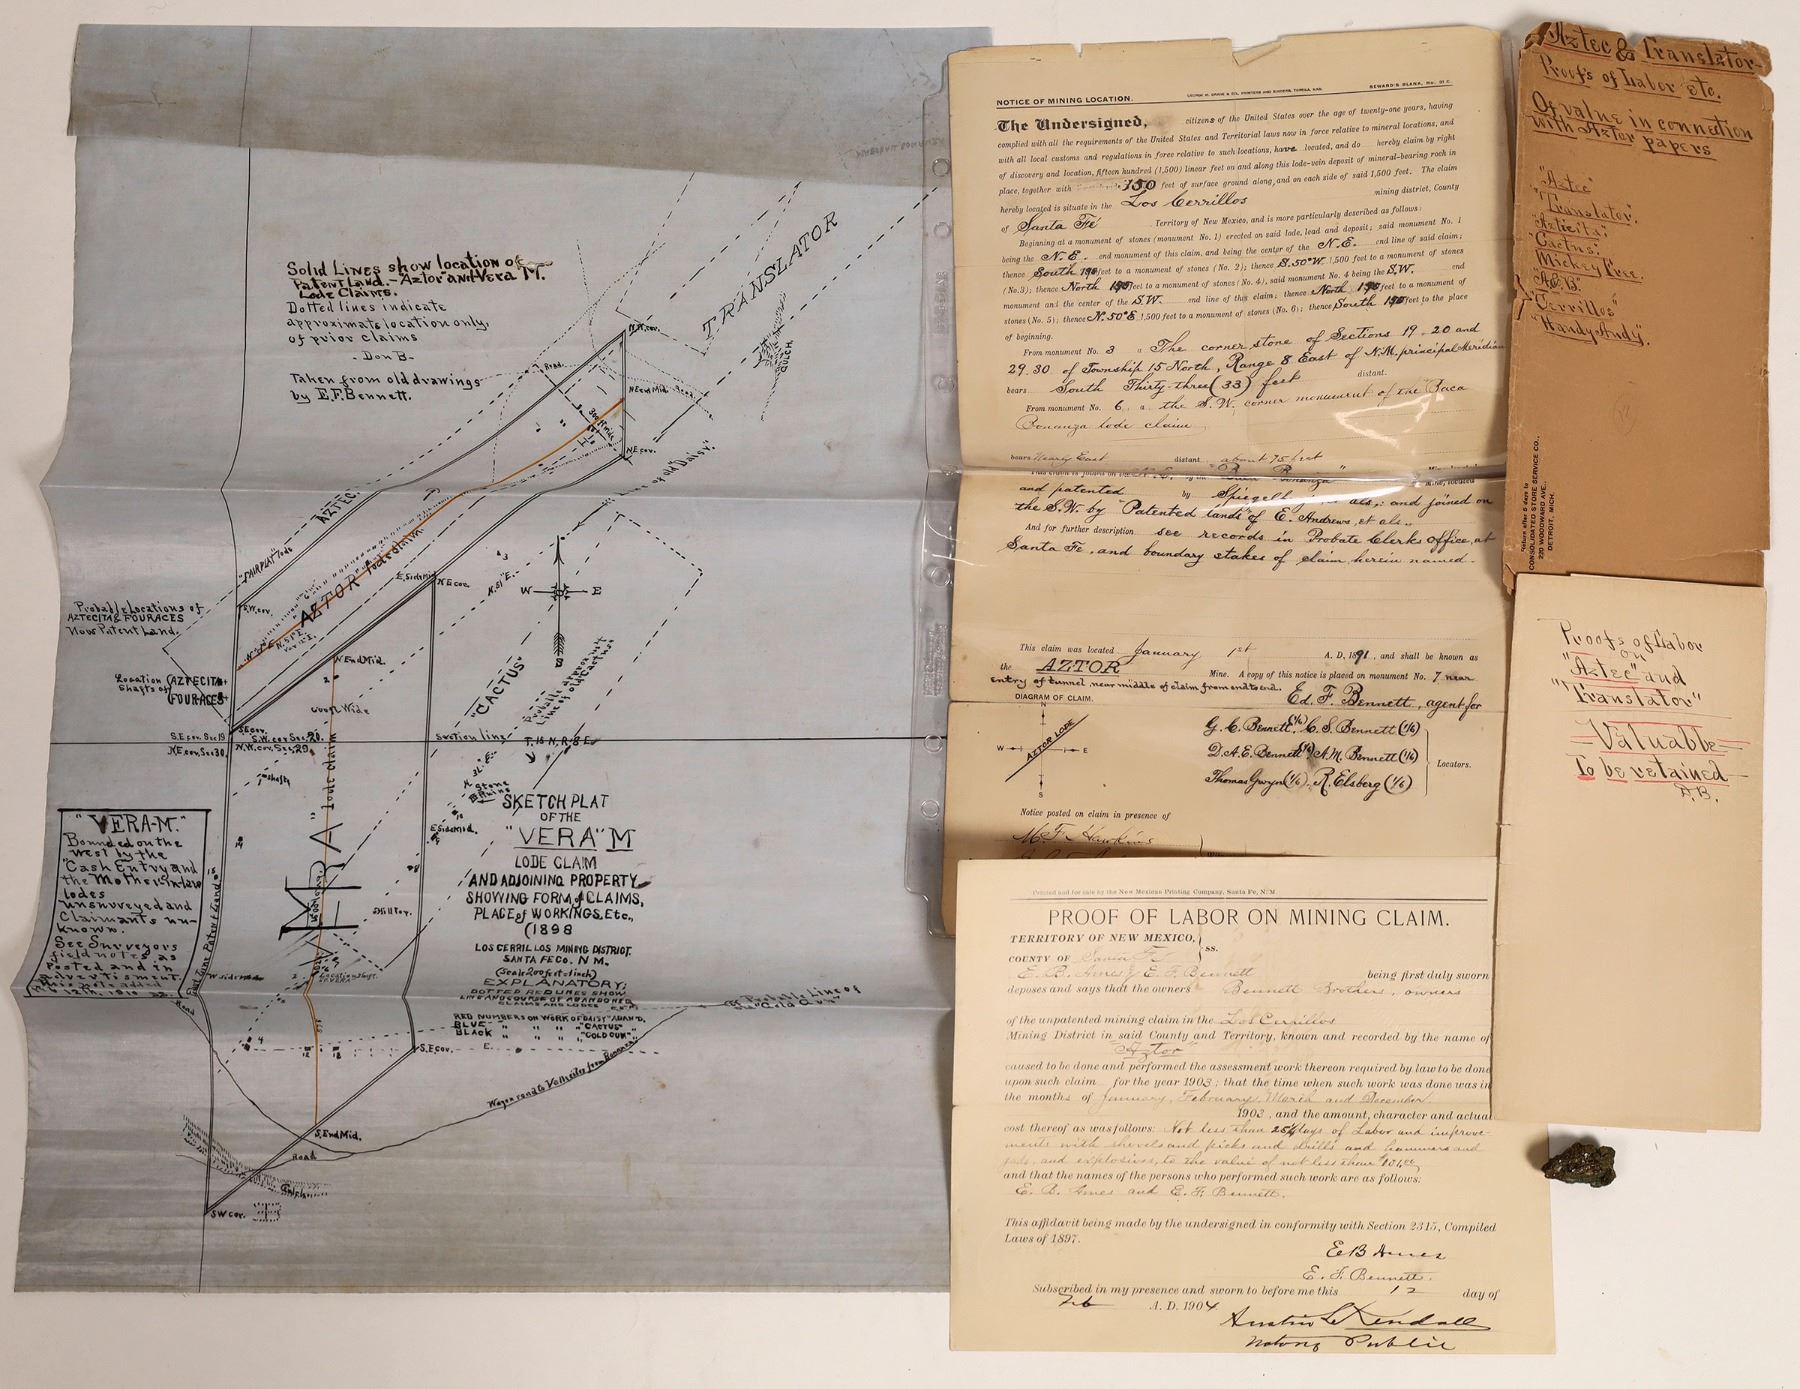 Solid Lines show location of
Patent Land. - "Aztor" and Vera M.
Lode Claims.
Dotted lines indicate
approximate location only,
of prior claims
- Don B -
Taken from old drawings
by E.F. Bennett.
TRANSLATOR
GULCH
N.W. cor.
Road
N End Mid.
300 ft wide
N E cor.
Line of old "Daisy".
AZTEC
"FAIRPLAY" lode
AZTOR lode claim
E. Side Mid.
N E cor.
S.W. cor.
N. 51° E.
W E
S
Probable Locations of
AZTECITA & FOUR ACES
Now Patent Land.
Location AZTECITA
Shafts of FOUR ACES
N End Mid.
600 ft Wide
"CACTUS"
Probable approximate
Lines of old Cactus
S.E. cor. Sec 19
S.W. cor Sec. 20.
N.E. cor. Sec 30.
N.W. cor. Sec. 29.
Section line
T. 15 N. R. 8 E.
shaft
E Side Mid.
"VERA M" lode claim
Hill top.
"VERA-M."
Bounded on the
west by the
"Cash Entry and
the Mother-in-law
lodes
unsurveyed and
Claimants un-
known.
See Surveyors
field notes as
Posted and in
advertisment.
SKETCH PLAT
OF THE
"VERA" M
LODE CLAIM
AND ADJOINING PROPERTY
SHOWING FORM of CLAIMS,
PLACE of WORKINGS, Etc.,
(1898
LOS CERRILLOS MINING DISTRICT.
SANTA FE CO. N M.
(Scale 200 feet = 1 inch)
EXPLANATORY:
DOTTED RED LINES SHOW
LINE AND COURSE OF ABANDONED
CLAIMS AND LODES
RED NUMBERS ON WORK OF "DAISY" ABAN'D,
BLUE " " " "CACTUS"
BLACK " " " "GOLD GUN"
Probable Line of
"Gold Gun"
W side mid
Road
S.E cor.
Wagon road to Valheita from Bonanza
S. End Mid.
Road
Gulch
S W cor.
NOTICE OF MINING LOCATION.
SEWARD'S BLANK, No. 31 C.
The Undersigned, citizens of the United States over the age of twenty-one years, having
complied with all the requirements of the United States and Territorial laws now in force relative to mineral locations, and
with all local customs and regulations in force relative to such locations, have located, and do hereby claim by right
of discovery and location, fifteen hundred (1,500) linear feet on and along this lode-vein deposit of mineral-bearing rock in
place, together with 150 feet of surface ground along, and on each side of said 1,500 feet. The claim
hereby located is situate in the Los Cerrillos mining district, County
of Santa Fé Territory of New Mexico, and is more particularly described as follows:
Beginning at a monument of stones (monument No. 1) erected on said lode, lead and deposit; said monument No. 1
being the N.E. end monument of this claim, and being the center of the N.E. end line of said claim;
thence South 150 feet to a monument of stones (No. 2); thence S. 50° W 1,500 feet to a monument of stones
(No. 3); thence North 150 feet to a monument of stones (No. 4), said monument No. 4 being the S.W. end
monument and the center of the S.W. end line of this claim; thence North 150 feet to a monument of
stones (No. 5); thence N. 50° E 1,500 feet to a monument of stones (No. 6); thence South 150 feet to the place
of beginning.
From monument No. 3 The corner stone of Sections 19-20 and
29.30 of Township 15 North, Range 8 East of N.M. principal Meridian
bears South Thirty-three (33) feet distant.
From monument No. 6, a the S.W. corner monument of the Baca
Bonanza lode claim
bears nearly East distant about 75 feet
and patented by Spiegell et als.; and joined on
the S.W. by "Patented lands" of E. Andrews, et als.
And for further description see records in Probate Clerks office, at
Santa Fe, and boundary stakes of claim, herein named.
This claim was located January 1st A. D. 1891, and shall be known as
the AZTOR Mine. A copy of this notice is placed on monument No. 7 near
entry of tunnel, near middle of claim from end to end.
Ed. F. Bennett, agent for
DIAGRAM OF CLAIM.
N
W E
AZTOR LODE
S
G. C. Bennett (1/6) C. S. Bennett (1/6)
D. A. E. Bennett (1/6) A. M. Bennett (1/6)
Thomas Gwyn (1/6). R. Elsberg (1/6)
Locators.
Notice posted on claim in presence of
M. F. Hawkins
Printed and for sale by the New Mexican Printing Company, Santa Fe, N. M.
PROOF OF LABOR ON MINING CLAIM.
TERRITORY OF NEW MEXICO,
ss.
COUNTY OF Santa Fe
E. B. Ames & E. F. Bennett being first duly sworn
deposes and says that the owners Bennett Brothers, owners
of the unpatented mining claim in the Los Cerrillos
Mining District in said County and Territory, known and recorded by the name of
"Aztor"
caused to be done and performed the assessment work thereon required by law to be done
upon such claim for the year 1903; that the time when such work was done was in
the months of January, February, March and December.
1903, and the amount, character and actual
cost thereof as was follows: Not less than 25¼ days of Labor and improve-
ments with shovels and picks and drills and hammers and
and explosives, to the value of not less than $101.00
and that the names of the persons who performed such work are as follows:
E. B. Ames and E. F. Bennett.
This affidavit being made by the undersigned in conformity with Section 2315, Compiled
Laws of 1897.
E B Ames
E. F. Bennett.
Subscribed in my presence and sworn to before me this 12 day of
Feb A. D. 1904
Austin L Kendall
Notary Public
Aztec & Translator-
Proofs of Labor etc.
Of value in connection
with Aztor papers
"Aztec"
"Translator",
"Azticita";
"Cactus";
Mickey Free.
"A.B."
"Cerrillos"
"Handy Andy".
Return after 5 days to
CONSOLIDATED STORE SERVICE CO.,
220 WOODWARD AVE.,
DETROIT, MICH.
Proofs of Labor
on
"Aztec" and
"Translator"
- Valuable -
To be retained -
D.B.